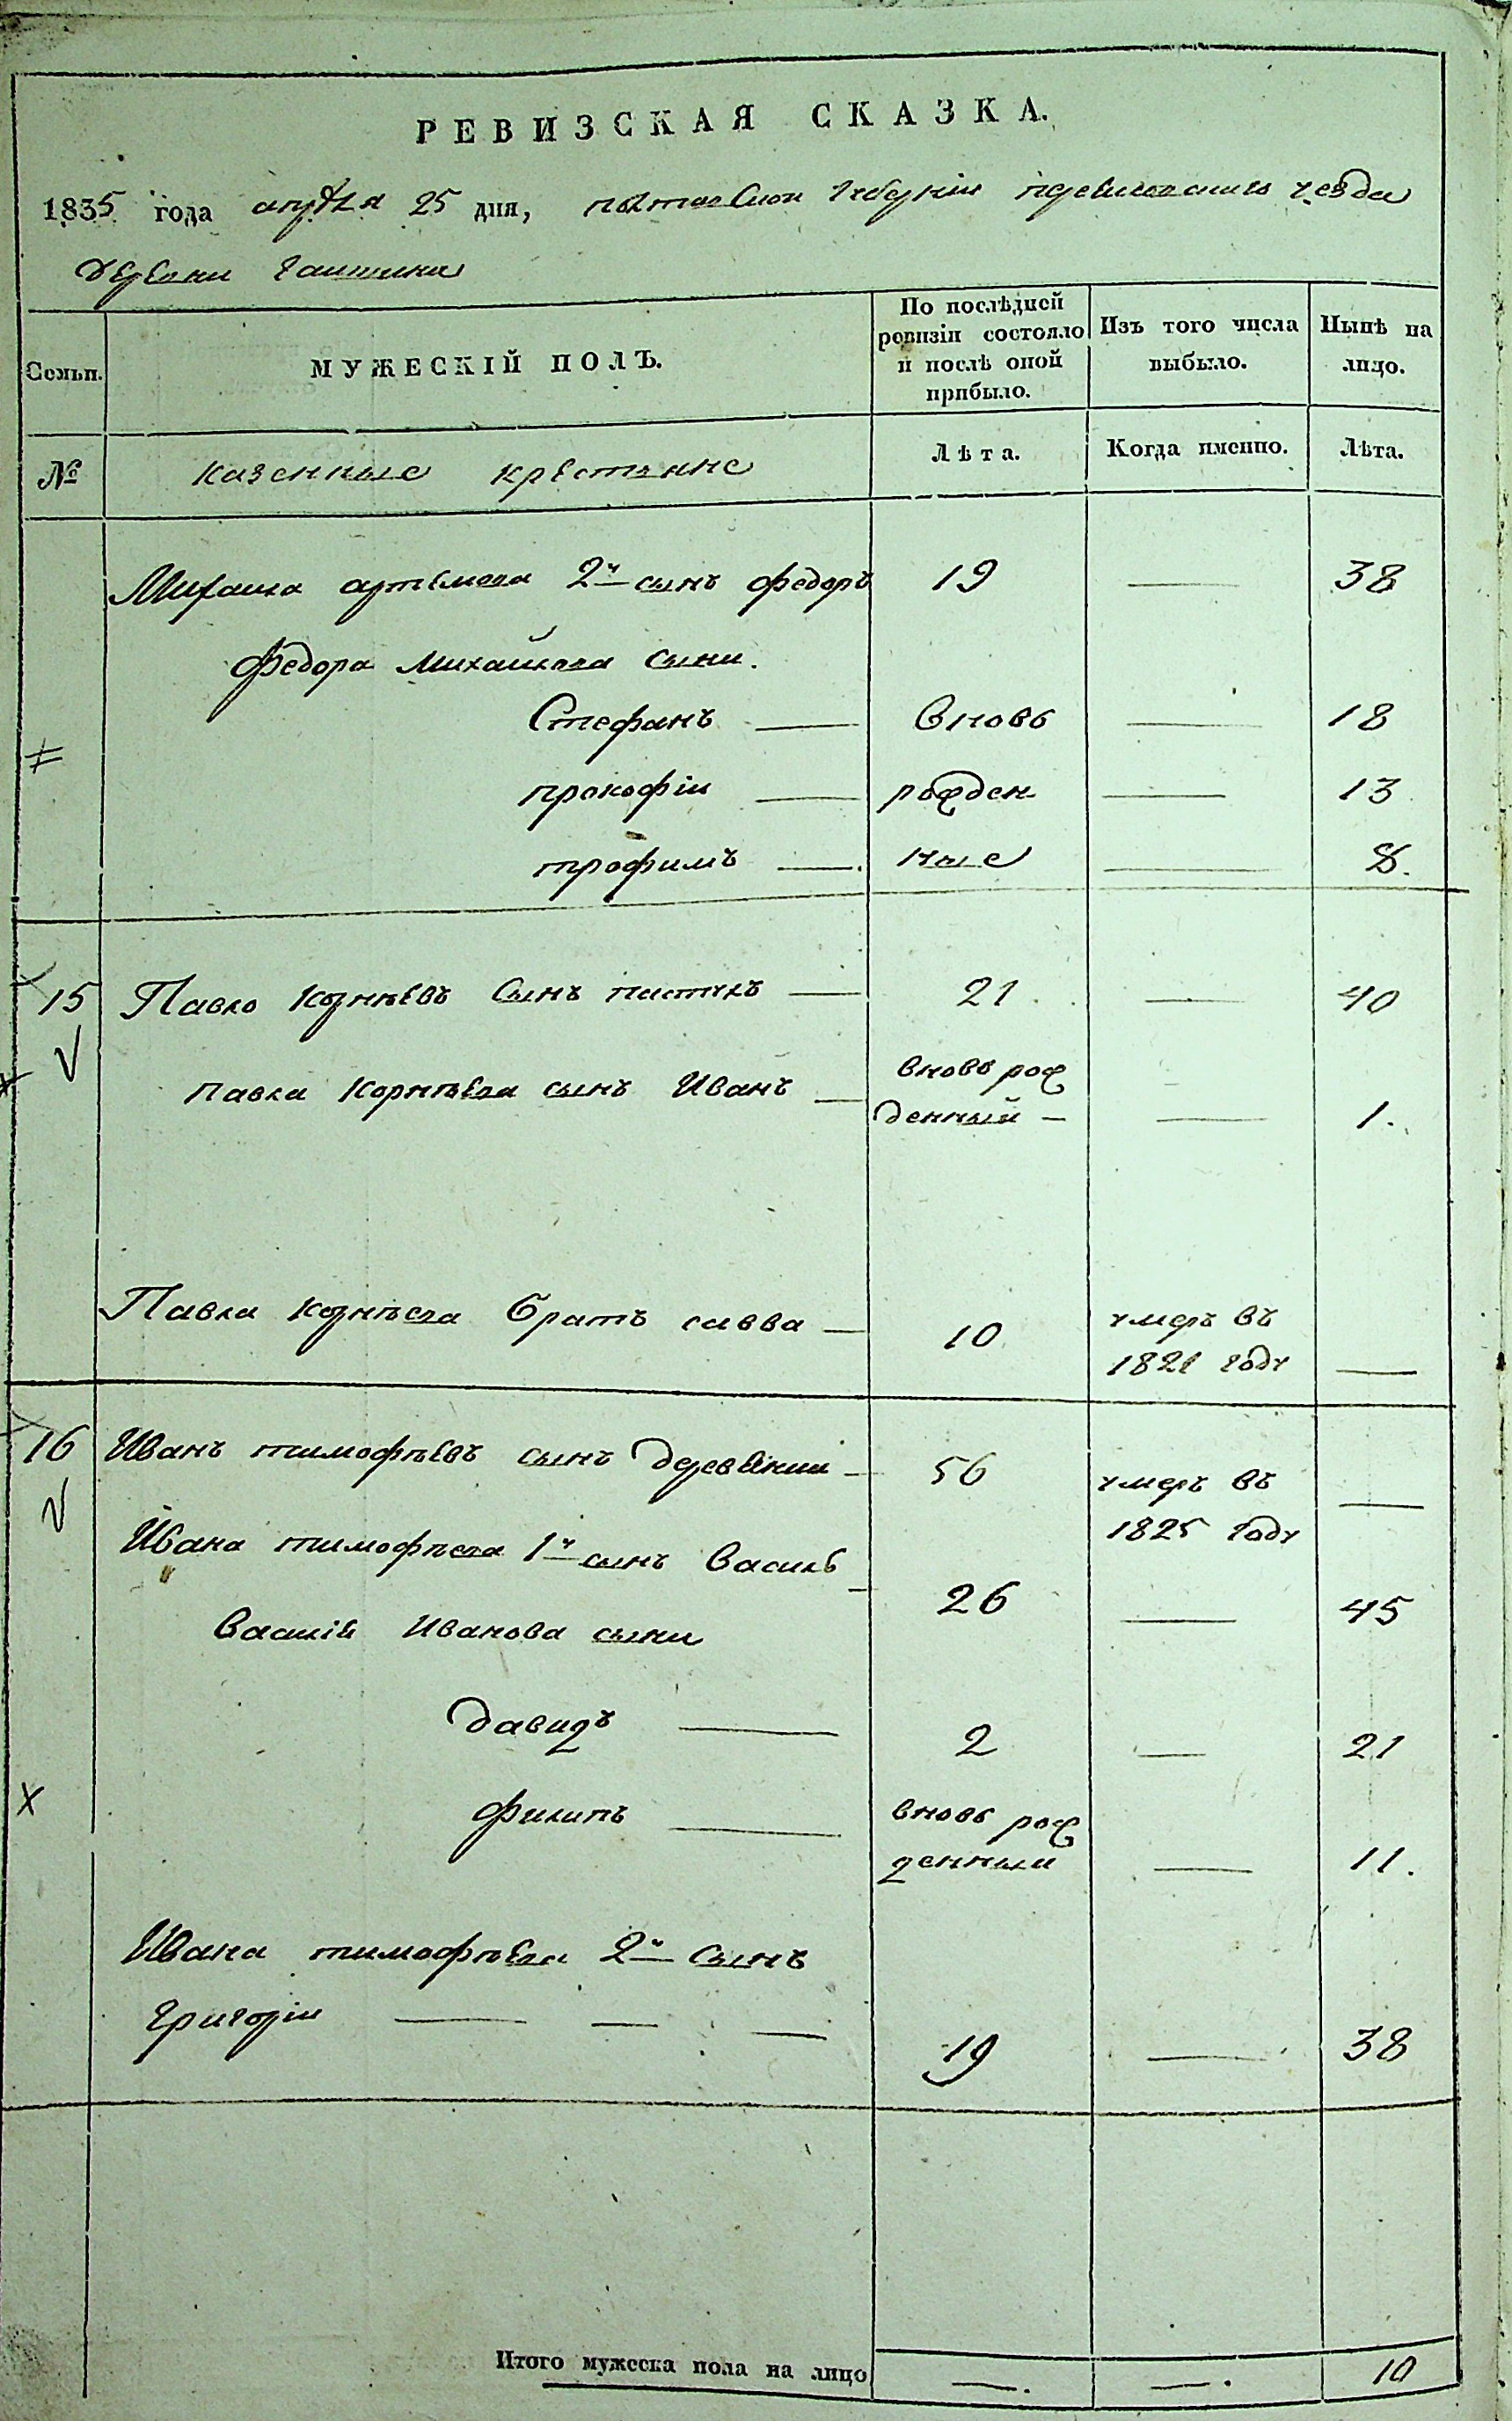 РЕВИЗСКАЯ СКАЗКА.
1835 года апреля 25 дня, полтавской губернии переяславского уезда
деревни
Семьи. МУЖЕСКІЙ ПОЛЪ. По послѣдней ревизіи состояло и послѣ оной прибыло. Изъ того числа выбыло. Нынѣ на лицо.
№ казенные крестьяне Лѣта. Когда именно. Лѣта.
Михаила артемова 2й сынъ федоръ 19 — 38
федора михайлова сыни.
Стефанъ — вновь — 18
прокофіи — рожден — 13
трофимъ — ные — 8.
15 Павло корнѣевъ сынъ пастухъ — 21 — 40
павла корнѣева сынъ Иванъ — вновь рож
денный — — 1.
Павла корнѣева братъ савва — 10 умеръ въ
1821 году —
16 Иванъ тимофѣевъ сынъ — 56 умеръ въ —
1825 году
Ивана тимофѣева 1й сынъ василь — 26 — 45
василія иванова сыни
давидъ — 2 — 21
филипъ — вновь рож
денный — 11.
Ивана тимофѣева 2й сынъ
григоріи — — — 19 — 38
Итого мужеска пола на лицо —. —. 10